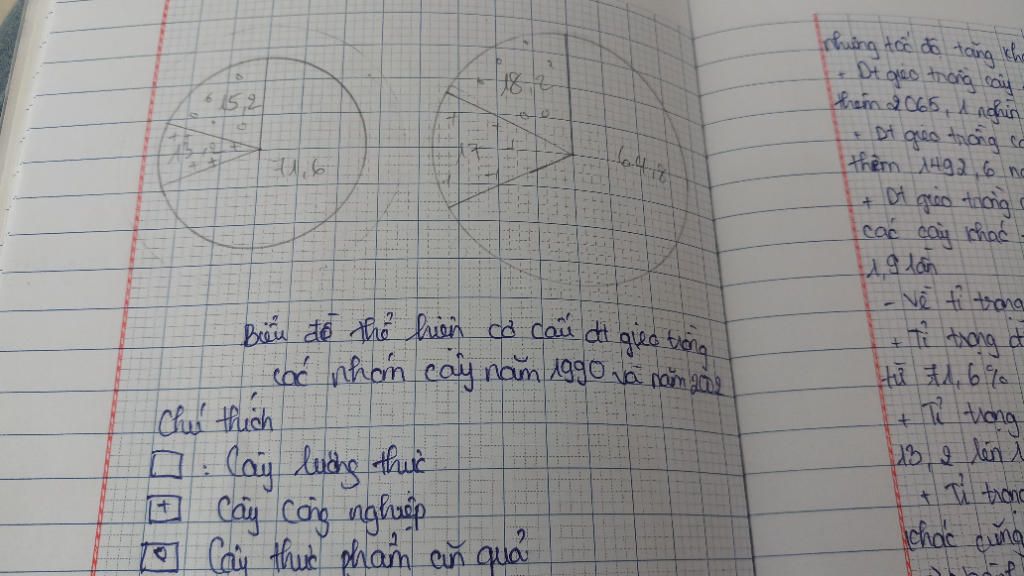 15,2
13,2
71,6
18,2
17
64,8
Biểu đồ thể hiện cơ cấu dt gieo trồng
các nhóm cây năm 1990 và năm 2002
Chú thích
: Cây lương thực
+ Cây công nghiệp
Cây thực phẩm ăn quả
nhưng tốc độ tăng
+ Dt gieo trồng cây
thêm 2065,1 nghìn
+ Dt gieo trồng
thêm 1492,6
+ Dt gieo trồng
các cây khác
1,9 lần
- Về tỉ trọng
+ Tỉ trọng
từ 71,6%
+ Tỉ trọng
13,2 lên
+ Tỉ trọng
khác cũng